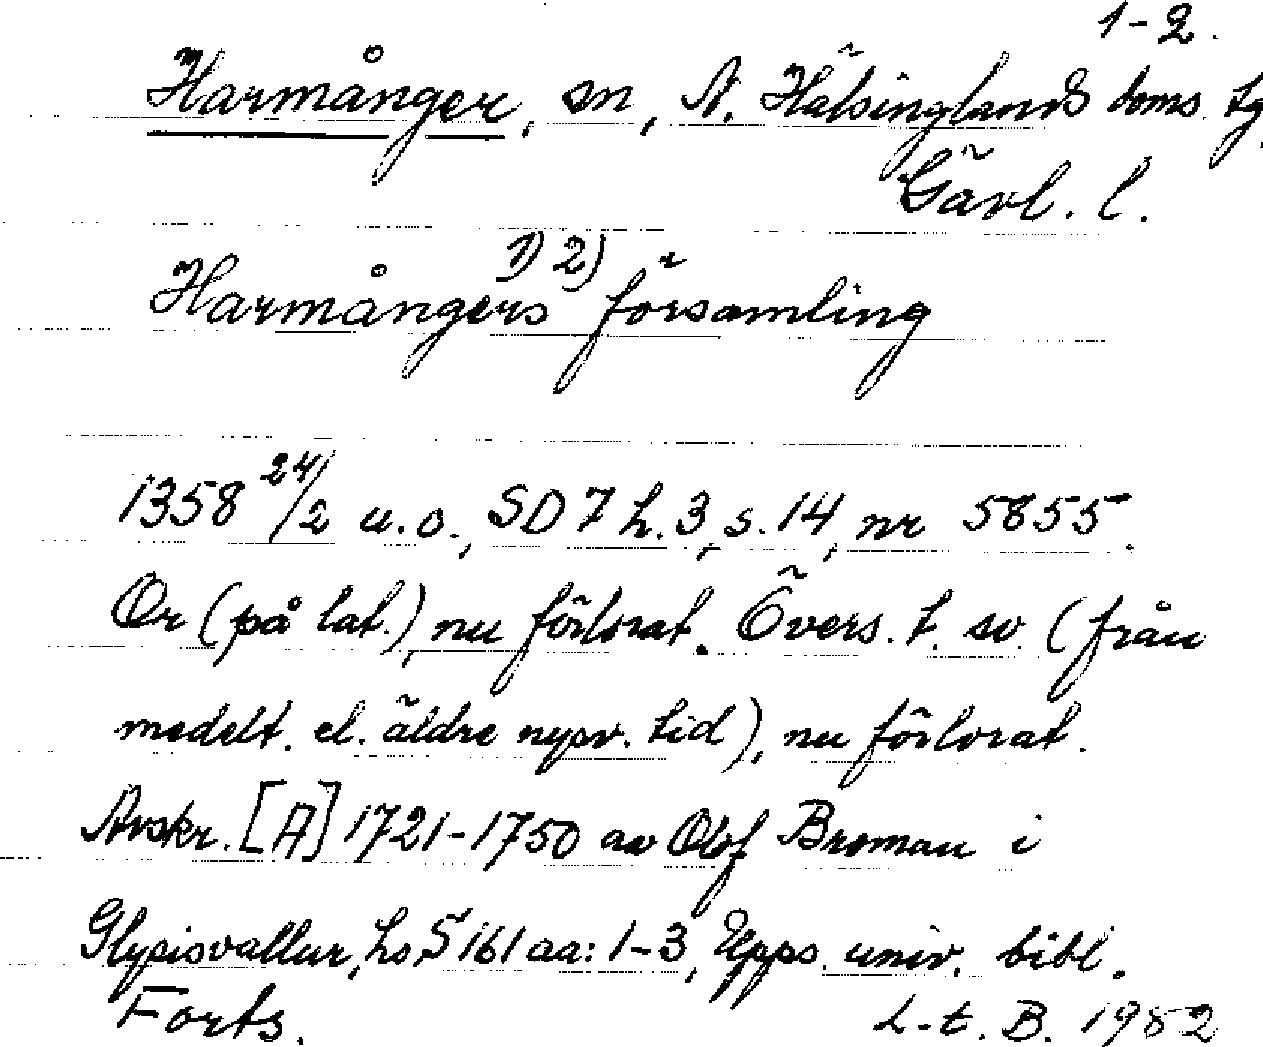 1-2.
Harmånger, sn, N. Hälsinglands doms. tg,
Gävl. l.
Harmångers 1) 2) församling
1358 24/2 u.o., SD 7 h. 3, s. 14, nr 5855.
Or (på lat.), nu förlorat. Övers. t. sv (från
medelt. el. äldre nysv. tid), nu förlorat.
Avskr. [A] 1721-1750 av Olof Broman i
Glysisvallur, hs S 161 aa: 1-3, Upps. univ. bibl.
Forts.
L-t. B. 1982